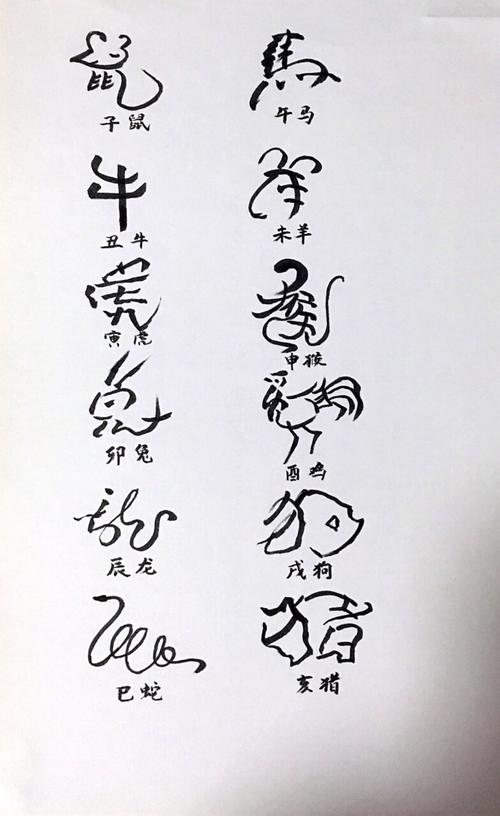 鼠
子鼠
牛
丑牛
虎
寅虎
兔
卯兔
龍
辰龙
蛇
巳蛇
馬
午马
羊
未羊
猴
申猴
酉鸡
狗
戌狗
猪
亥猪